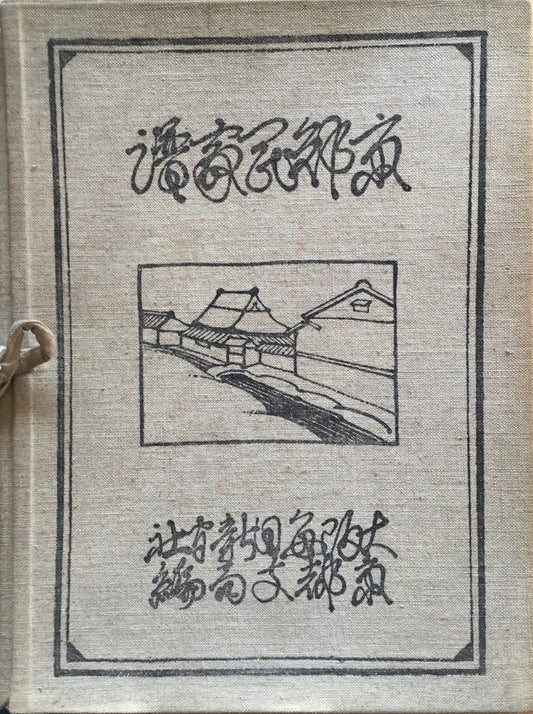 京都民家譜
大阪毎日新聞社
京都支局編